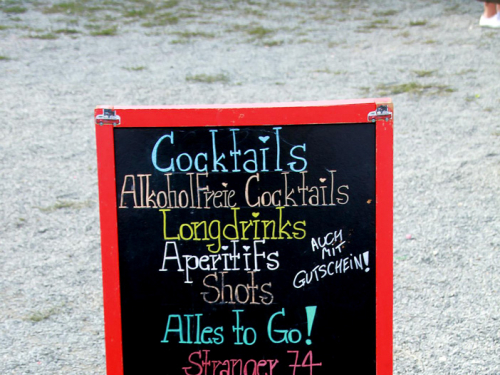 Cocktails
Alkoholfreie Cocktails
Longdrinks
Aperitifs
AUCH
MIT
GUTSCHEIN!
Shots
Alles to Go!
Stranger 74